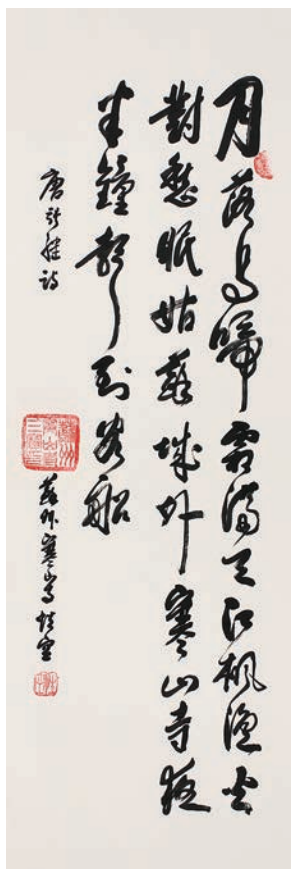 月落烏啼霜滿天江楓漁火
對愁眠姑蘇城外寒山寺夜
半鐘聲到客船
唐張繼詩
蘇州寒山寺性空